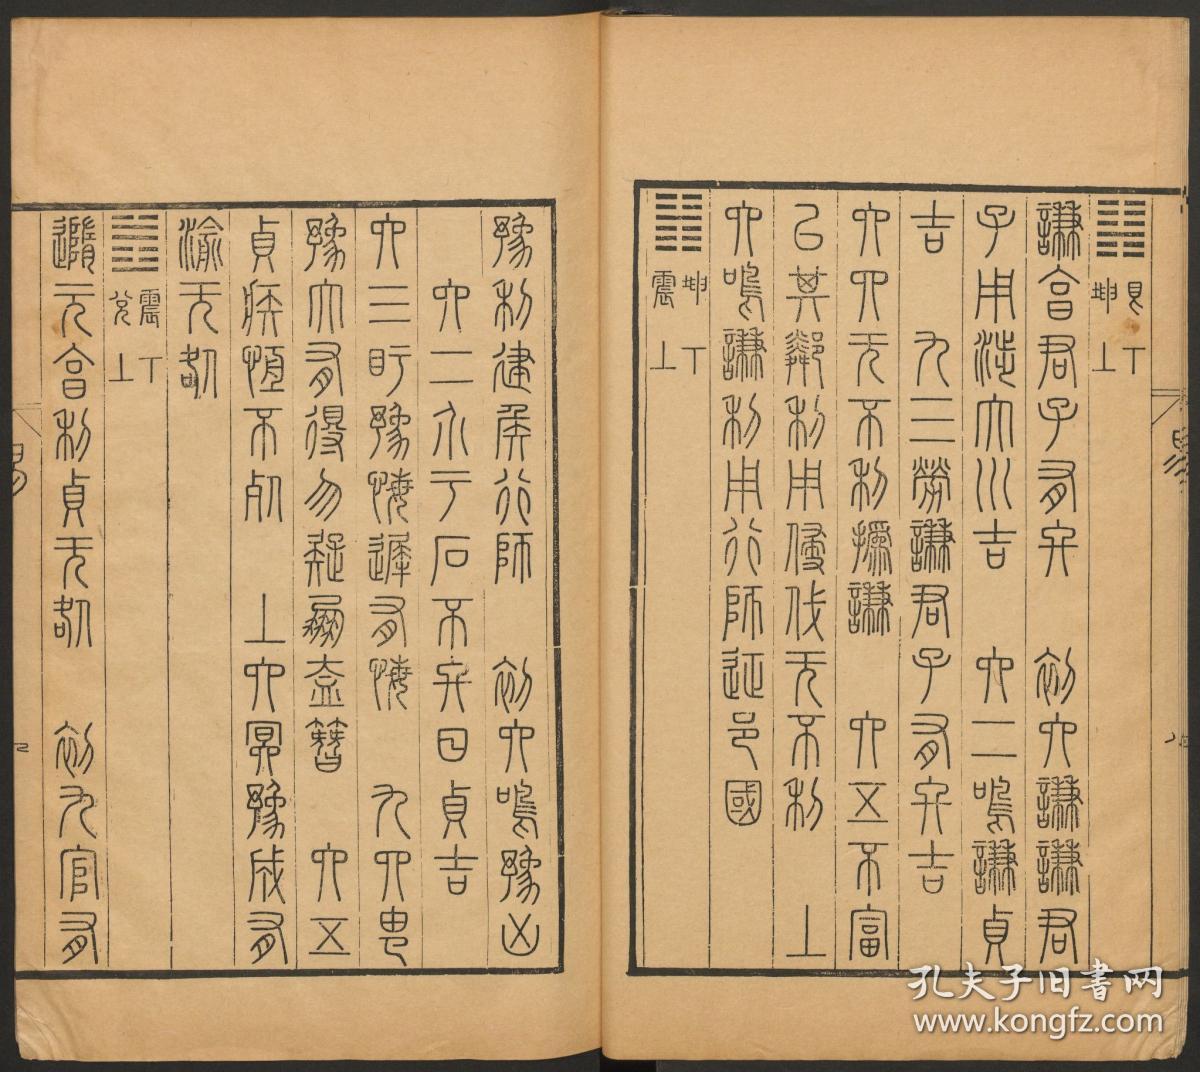 ䷎ 艮下 坤上
謙亨君子有終 初六謙謙君
子用涉大川吉 六二鳴謙貞
吉 九三勞謙君子有終吉
六四无不利撝謙 六五不富
以其鄰利用侵伐无不利 上
六鳴謙利用行師征邑國
䷏ 坤下 震上
豫利建侯行師 初六鳴豫凶
六二介于石不終日貞吉
六三盱豫悔遲有悔 九四由
豫大有得勿疑朋盍簪 六五
貞疾恆不死 上六冥豫成有
渝无咎
䷐ 震下 兌上
隨元亨利貞无咎 初九官有
孔夫子旧书网
www.kongfz.com